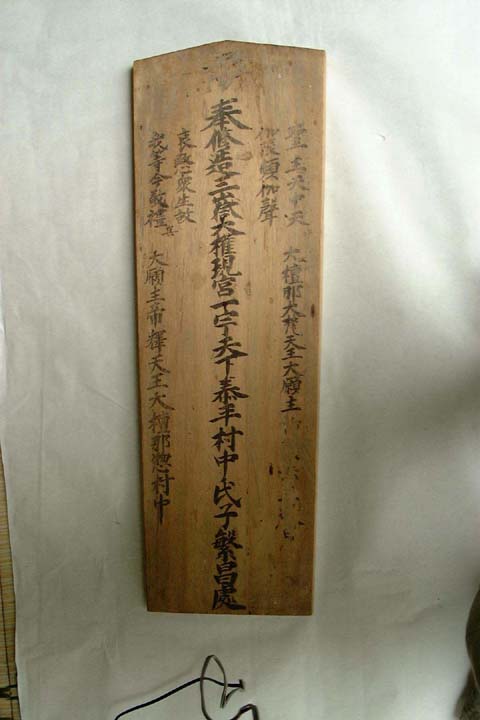 聖主天中天 大檀那大梵天王大願主
迦陵頻伽聲
奉修造三大權現宮一宇天下泰平村中氏子繁昌處
哀愍衆生故
我等今敬禮 大願主帝釋天王大檀那惣村中